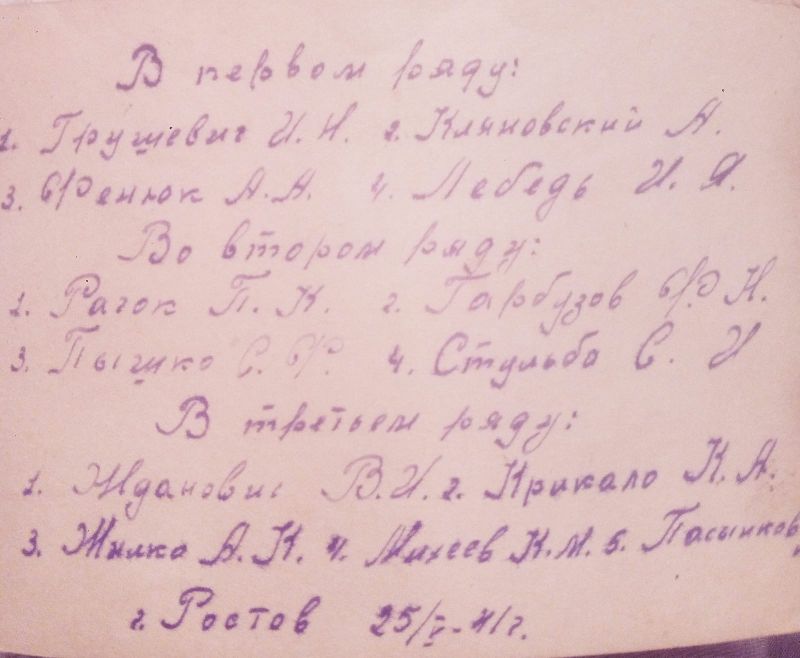 В первом ряду:
1. Грушевич И. Н. 2. Кляновский А.
3. Фенюк А. А. 4. Лебедь И. Я.
Во втором ряду:
1. Рагок П. К. 2. Гарбузов Ф. Н.
3. Пышко С. Ф. 4. Стульба С. И
В третьем ряду:
1. Жданович В. И. 2. Крикало К. А.
3. Жилка А. К. 4. Михеев К. М. 5. Пасынков
г. Ростов 25/V-41г.